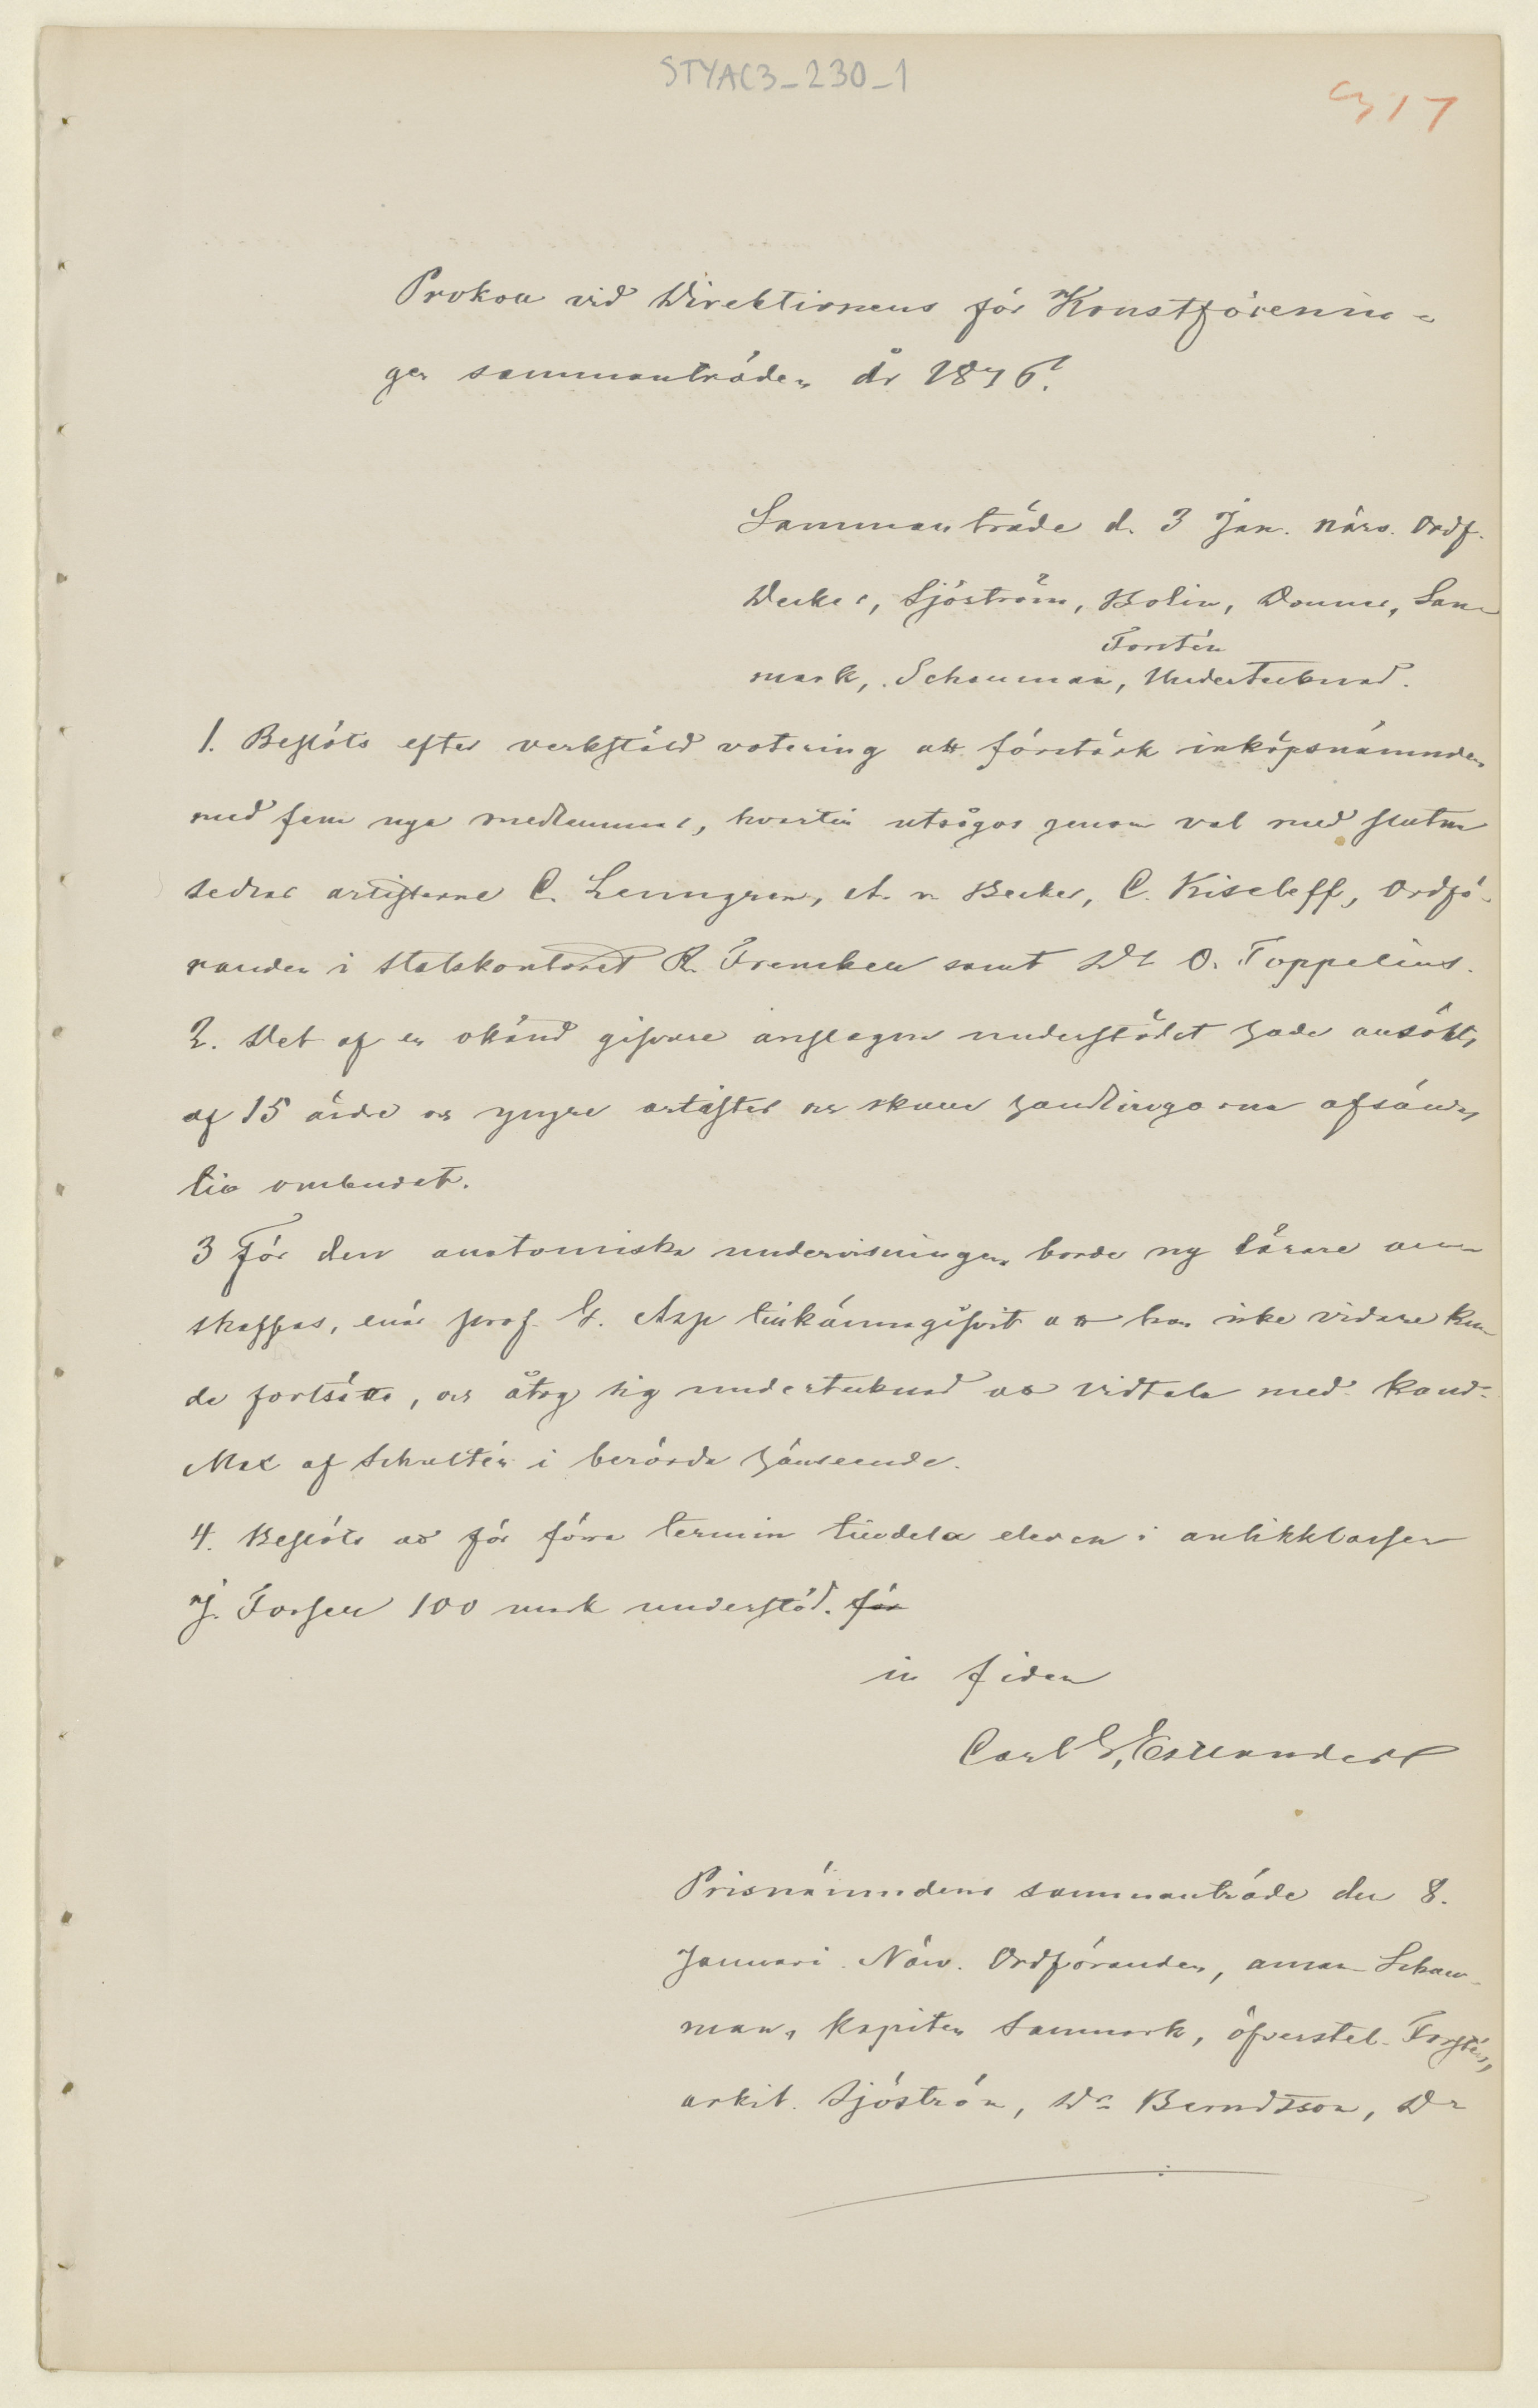 STYAC3_230_1
17
Prokoll vid Direktionens för Konstförenin-
gen sammanträden år 1876.
Sammanträde d. 3 Jan. närv. Ordf.
Decker, Sjöström, Bolin, Donner, San-
Forstén
mark, Schauman, Undertecknad.
1. Beslöts efter verkstäld votering att förstärk inköpsnämnden
med fem nya medlemmar, hvartill utsågos genom val med slutna
sedlar artisterne C. Lemmgren, A. v. Becker, C. Kiseleff, Ordfö-
randen i Statskontoret R. Frenckell samt Dr O. Toppelius.
2. Det af en okänd gifvare anslagna understödet hade ansökts
af 15 äldre och yngre artister och skulle handlingarna afsändas
till ombudet.
3 För den anatomiska undervisningen borde ny lärare an-
skaffas, enär prof. G. Asp tillkännagifvit att han icke vidare kun-
de fortsätta, och åtog sig undertecknad att vidtala med kand.
Max af Schultén i berörda hänseende.
4. Beslöts att för förra termin tilldela eleven i antikklassen
J. Forsell 100 mark understöd. för
in fidem
Carl G. Estlander
Prisnämndens sammanträde den 8.
Januari. Närv. Ordföranden, aman. Schau-
man, kapiten Sanmark, öfverstel. Forstén,
arkit. Sjöström, Dr Berndtson, Dr